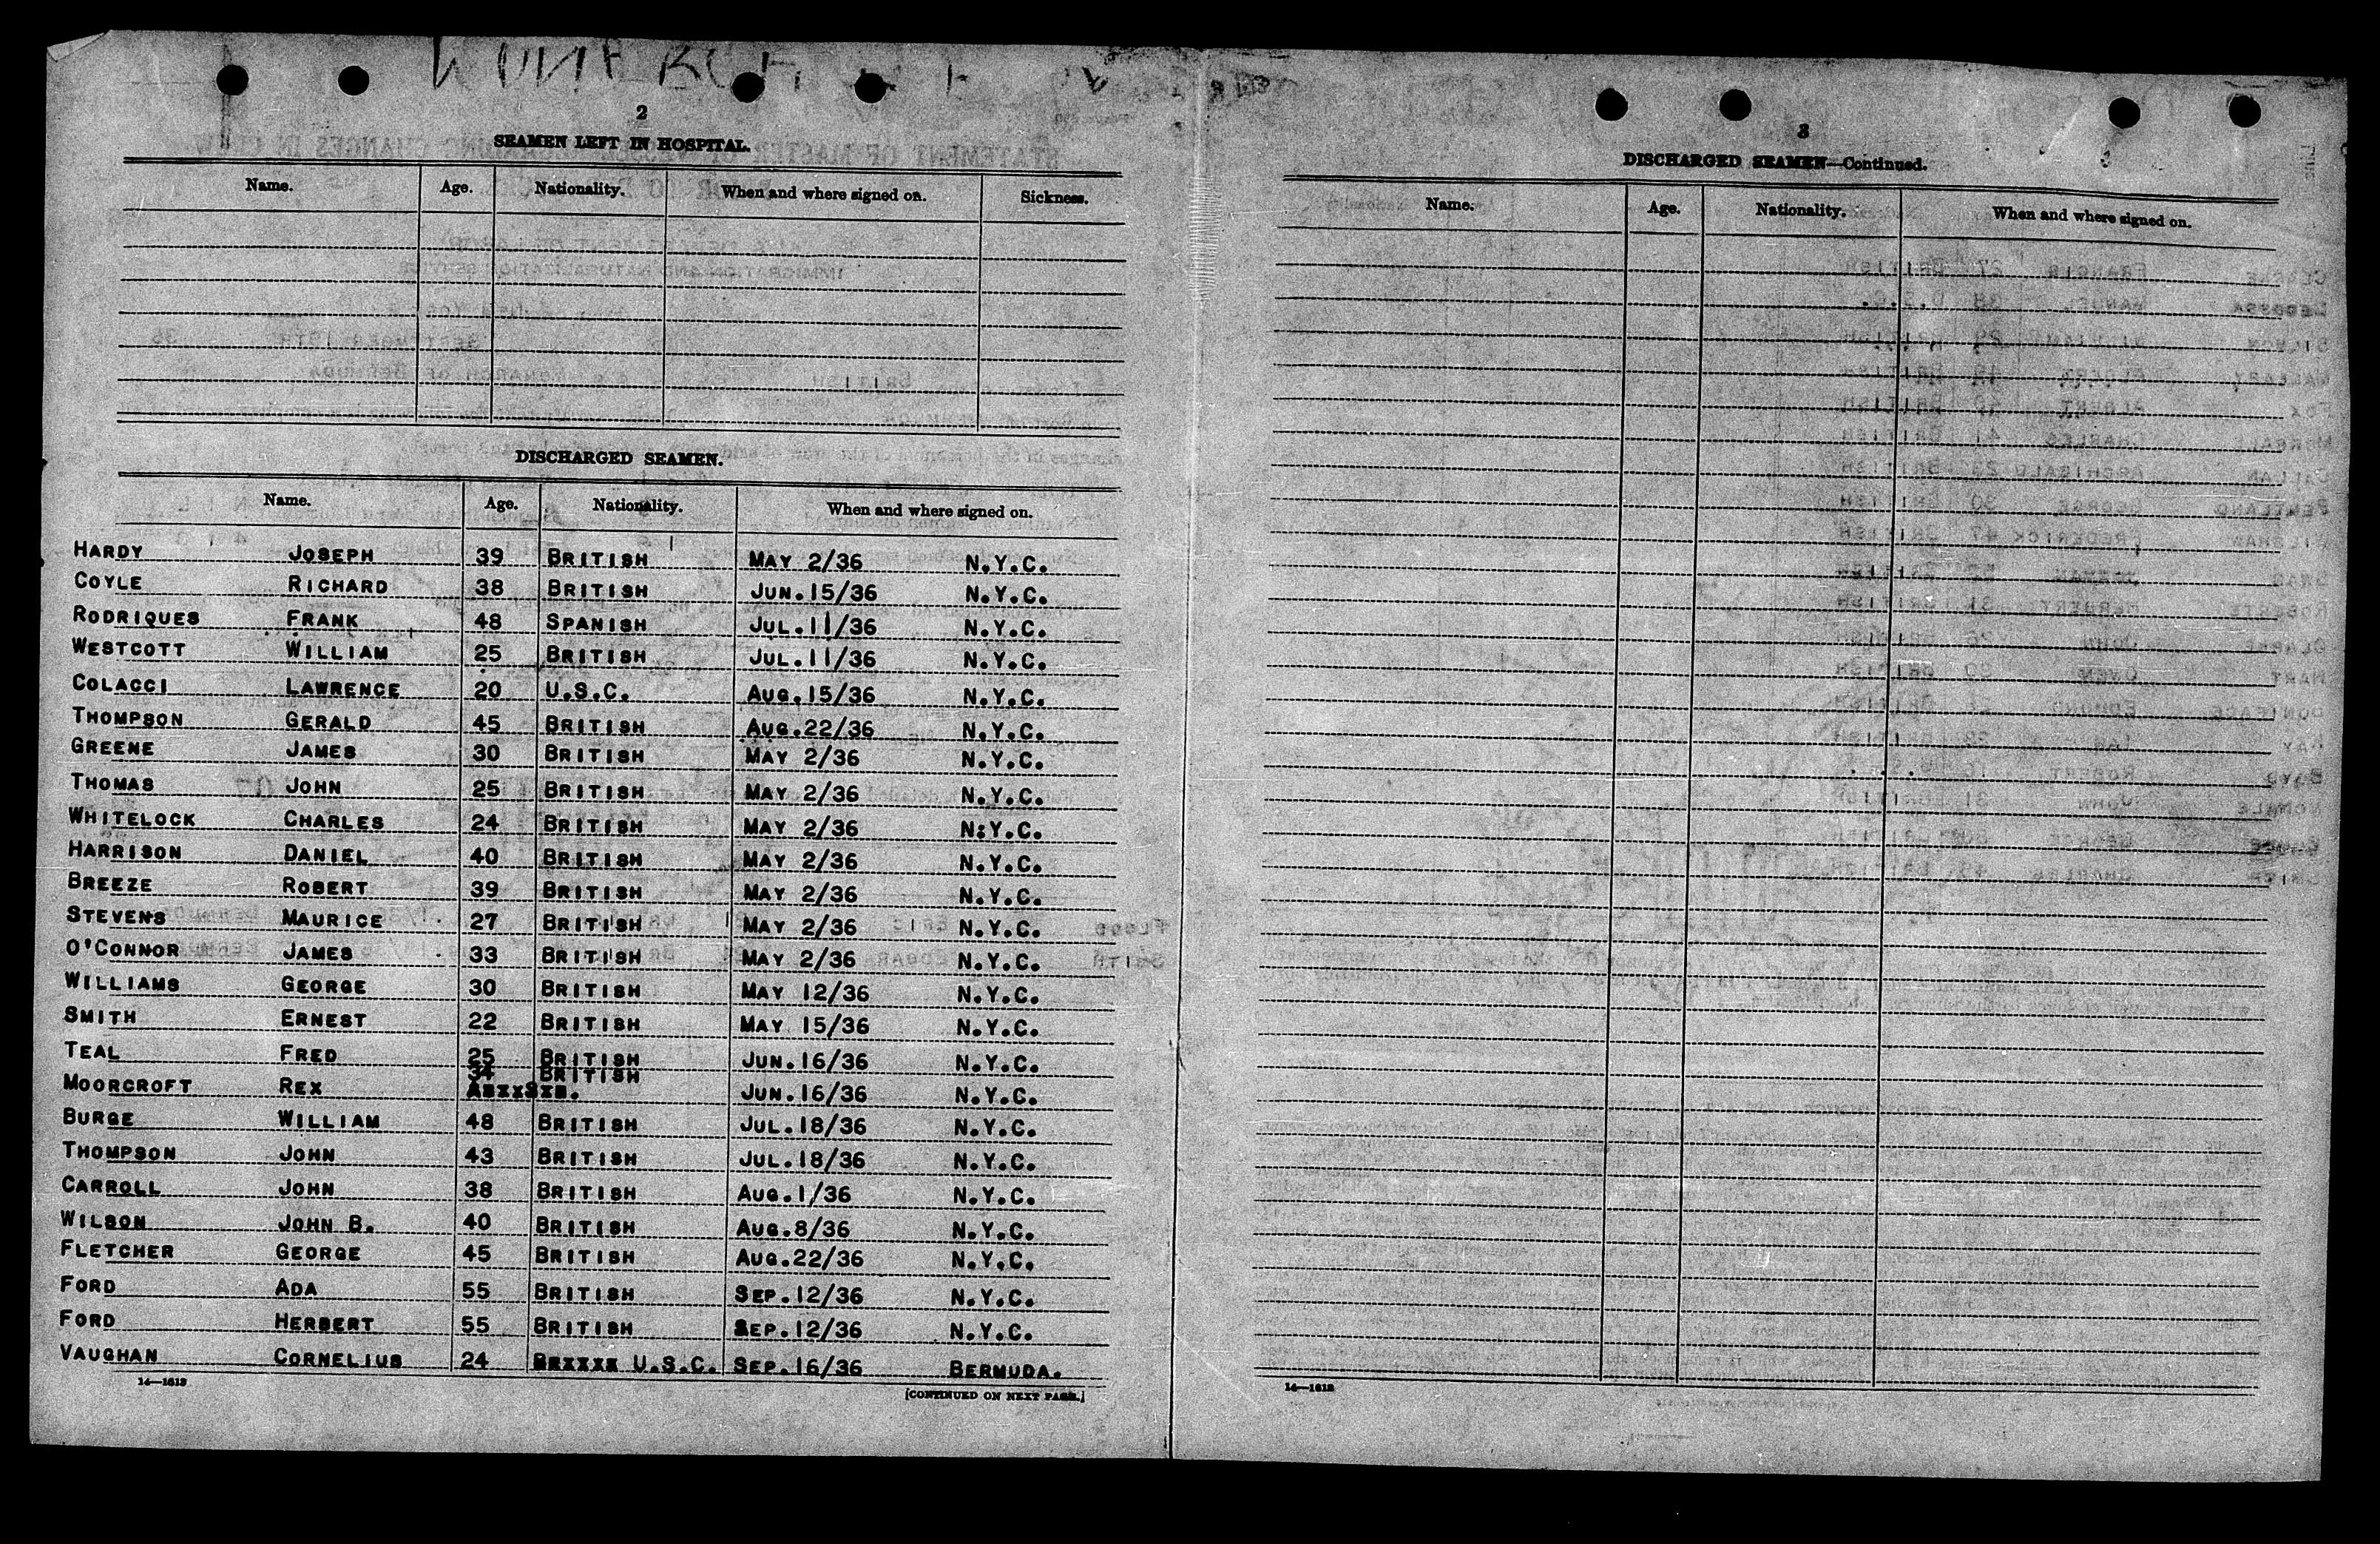 2
SEAMEN LEFT IN HOSPITAL.
Name. Age. Nationality. When and where signed on. Sickness.
DISCHARGED SEAMEN.
Name. Age. Nationality. When and where signed on.
HARDY JOSEPH 39 BRITISH MAY 2/36 N.Y.C.
COYLE RICHARD 38 BRITISH JUN.15/36 N.Y.C.
RODRIQUES FRANK 48 SPANISH JUL.11/36 N.Y.C.
WESTCOTT WILLIAM 25 BRITISH JUL.11/36 N.Y.C.
COLACCI LAWRENCE 20 U.S.C. AUG.15/36 N.Y.C.
THOMPSON GERALD 45 BRITISH AUG.22/36 N.Y.C.
GREENE JAMES 30 BRITISH MAY 2/36 N.Y.C.
THOMAS JOHN 25 BRITISH MAY 2/36 N.Y.C.
WHITELOCK CHARLES 24 BRITISH MAY 2/36 N:Y.C.
HARRISON DANIEL 40 BRITISH MAY 2/36 N.Y.C.
BREEZE ROBERT 39 BRITISH MAY 2/36 N.Y.C.
STEVENS MAURICE 27 BRITISH MAY 2/36 N.Y.C.
O'CONNOR JAMES 33 BRITISH MAY 2/36 N.Y.C.
WILLIAMS GEORGE 30 BRITISH MAY 12/36 N.Y.C.
SMITH ERNEST 22 BRITISH MAY 15/36 N.Y.C.
TEAL FRED 25 BRITISH JUN.16/36 N.Y.C.
MOORCROFT REX 34 BRITISH JUN.16/36 N.Y.C.
BURGE WILLIAM 48 BRITISH JUL.18/36 N.Y.C.
THOMPSON JOHN 43 BRITISH JUL.18/36 N.Y.C.
CARROLL JOHN 38 BRITISH AUG.1/36 N.Y.C.
WILSON JOHN B. 40 BRITISH AUG.8/36 N.Y.C.
FLETCHER GEORGE 45 BRITISH AUG.22/36 N.Y.C.
FORD ADA 55 BRITISH SEP.12/36 N.Y.C.
FORD HERBERT 55 BRITISH SEP.12/36 N.Y.C.
VAUGHAN CORNELIUS 24 U.S.C. SEP.16/36 BERMUDA.
14—1613
[CONTINUED ON NEXT PAGE.]
3
DISCHARGED SEAMEN—Continued.
Name. Age. Nationality. When and where signed on.
14—1613